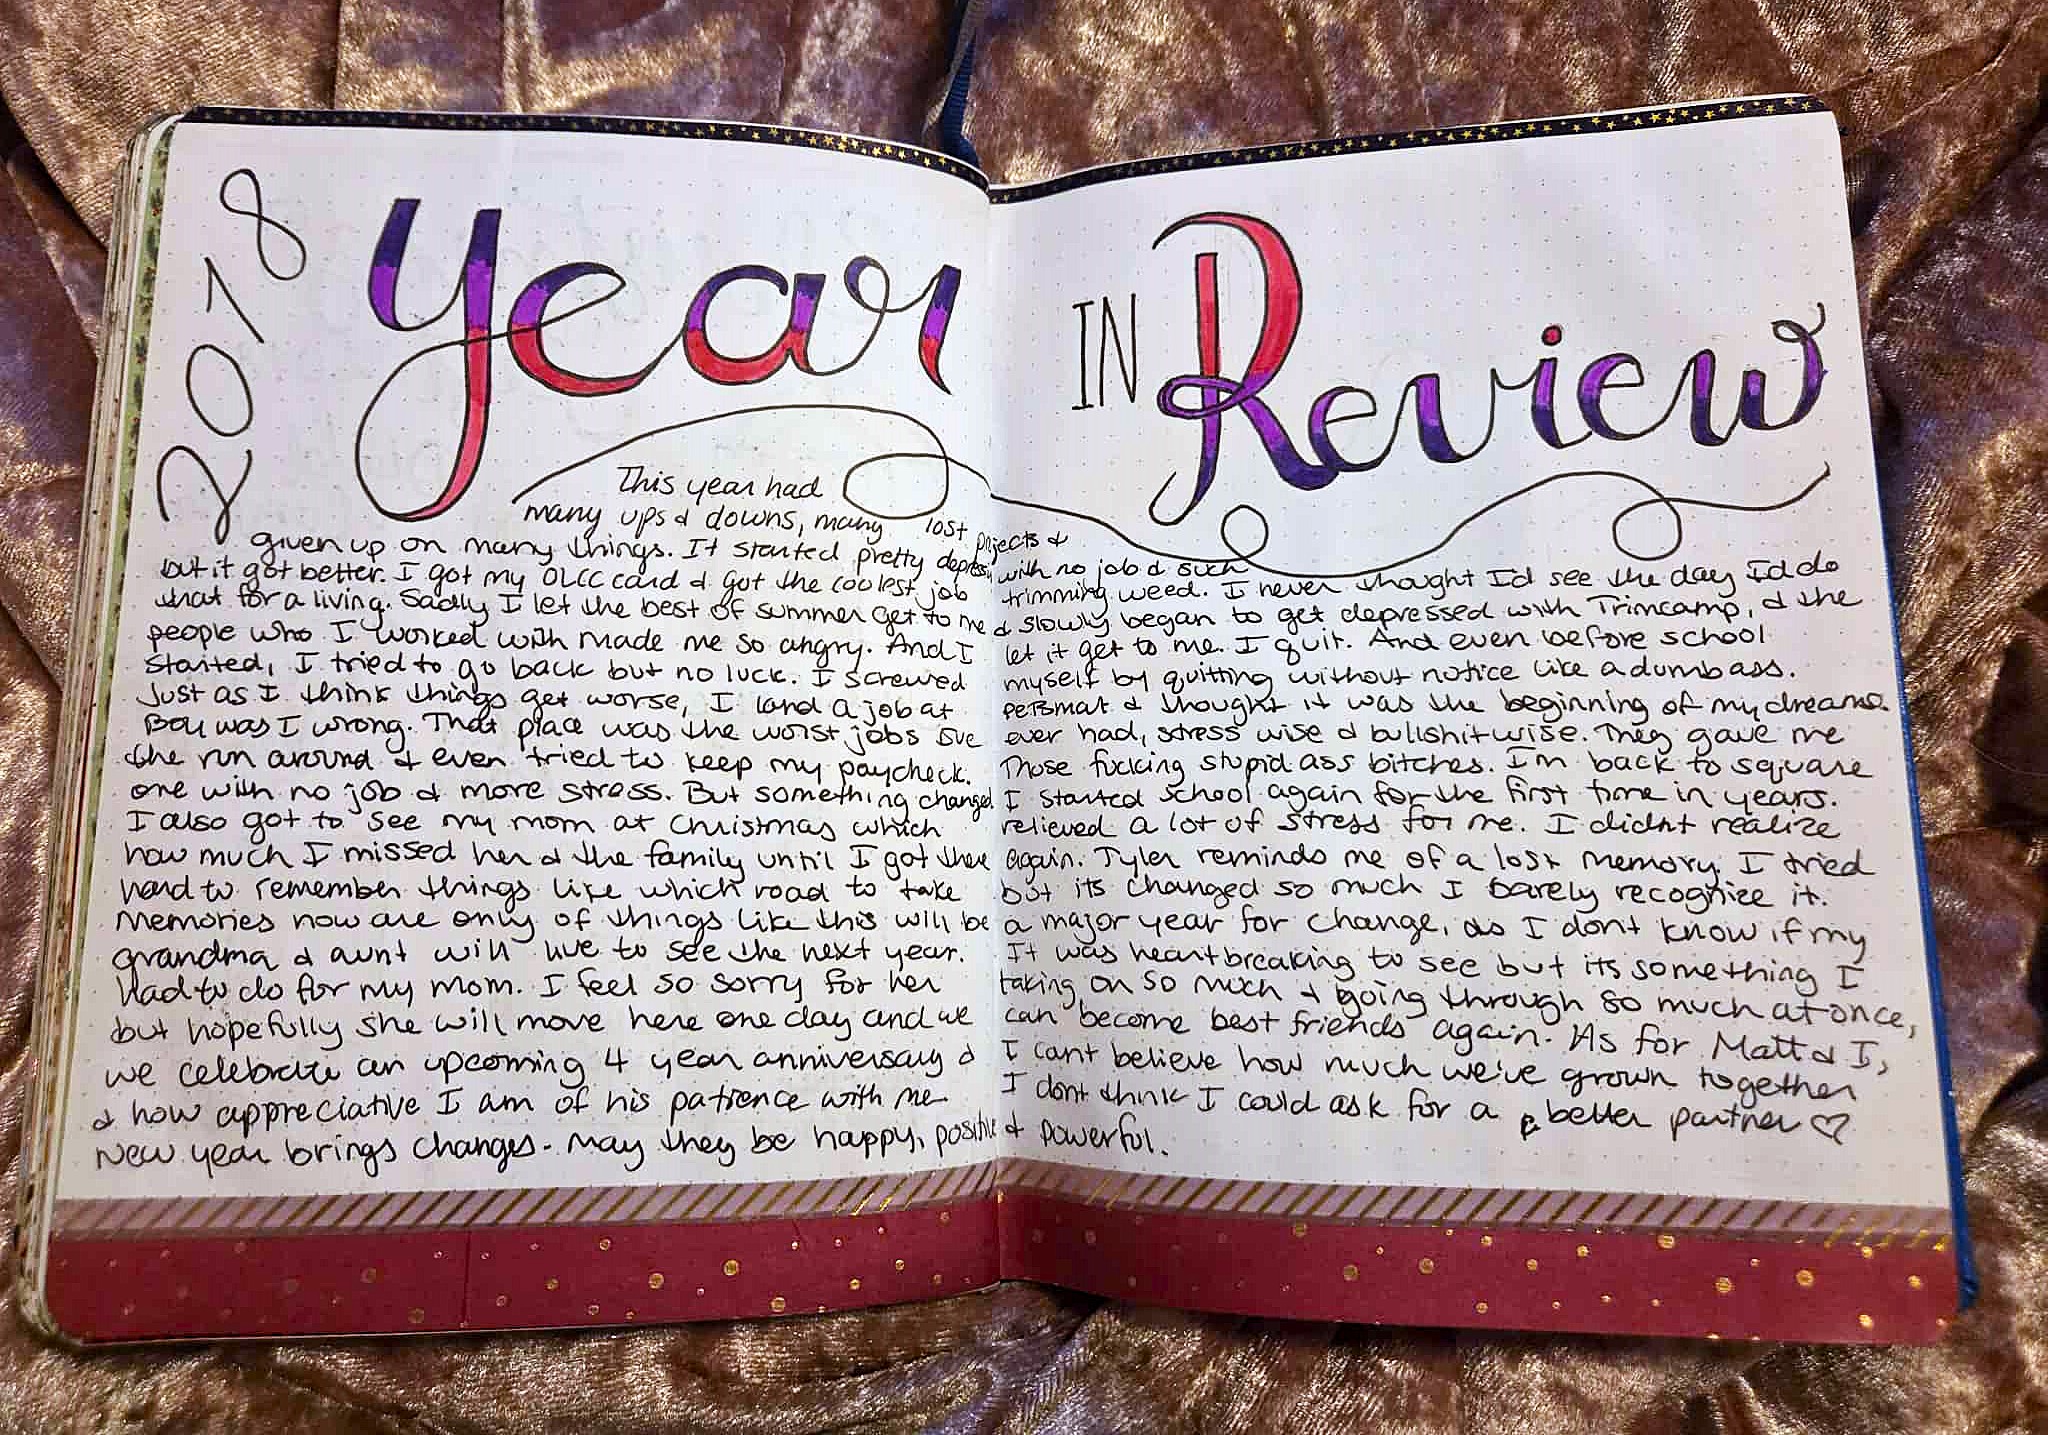 2018
Year IN Review
This year had
many ups & downs, many lost projects &
given up on many things. It started pretty depressing with no job & such
but it got better. I got my OLCC card & got the coolest job trimming weed. I never thought I'd see the day I'd do
that for a living. Sadly I let the best of summer get to me & slowly began to get depressed with Trimcamp, & the
people who I worked with made me so angry. And I let it get to me. I quit. And even before school
started, I tried to go back but no luck. I screwed myself by quitting without notice like a dumbass.
Just as I think things get worse, I land a job at petsmart & thought it was the beginning of my dreams.
Boy was I wrong. That place was the worst jobs I've ever had, stress wise & bullshit wise. They gave me
the run around & even tried to keep my paycheck. Those fucking stupid ass bitches. I'm back to square
one with no job & more stress. But something changed I started school again for the first time in years.
I also got to see my mom at Christmas which relieved a lot of stress for me. I didnt realize
how much I missed her & the family until I got there again. Tyler reminds me of a lost memory. I tried
hard to remember things like which road to take but its changed so much I barely recognize it.
Memories now are only of things like this will be a major year for change, as I dont know if my
grandma & aunt will live to see the next year. It was heartbreaking to see but its something I
had to do for my mom. I feel so sorry for her taking on so much & going through so much at once,
but hopefully she will move here one day and we can become best friends again. As for Matt & I,
we celebrate an upcoming 4 year anniversary & I cant believe how much we've grown together
& how appreciative I am of his patience with me. I dont think I could ask for a better partner ♡
New year brings changes. May they be happy, positive & powerful.